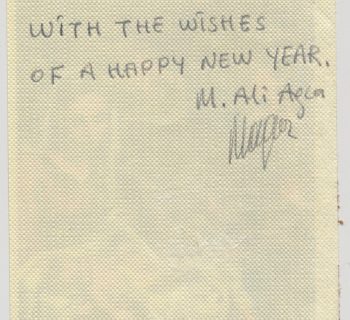 WITH THE WISHES
OF A HAPPY NEW YEAR.
M. Ali Agca